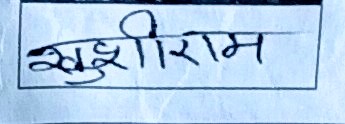 खुशीराम